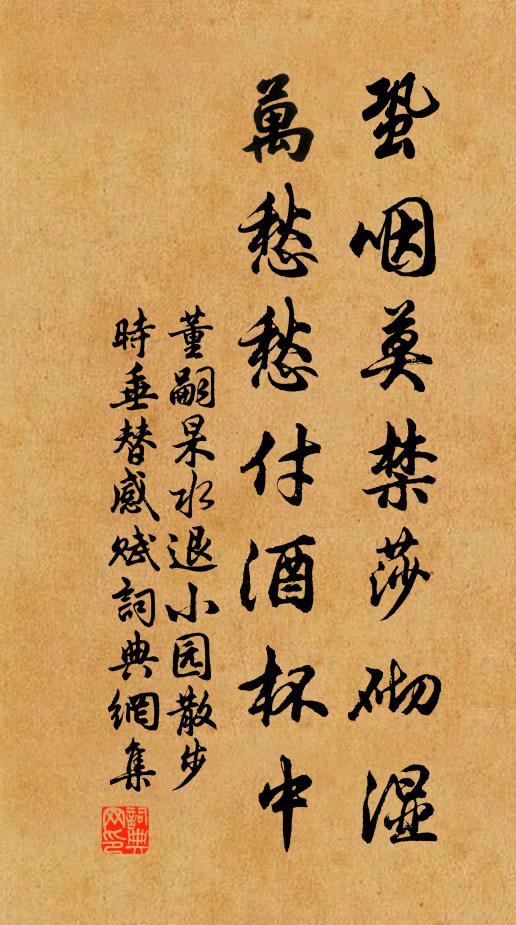 蛩咽莫禁莎砌湿
萬愁愁付酒杯中
董嗣杲水退小园散步
時垂替感赋詞典網集
詞典
网印